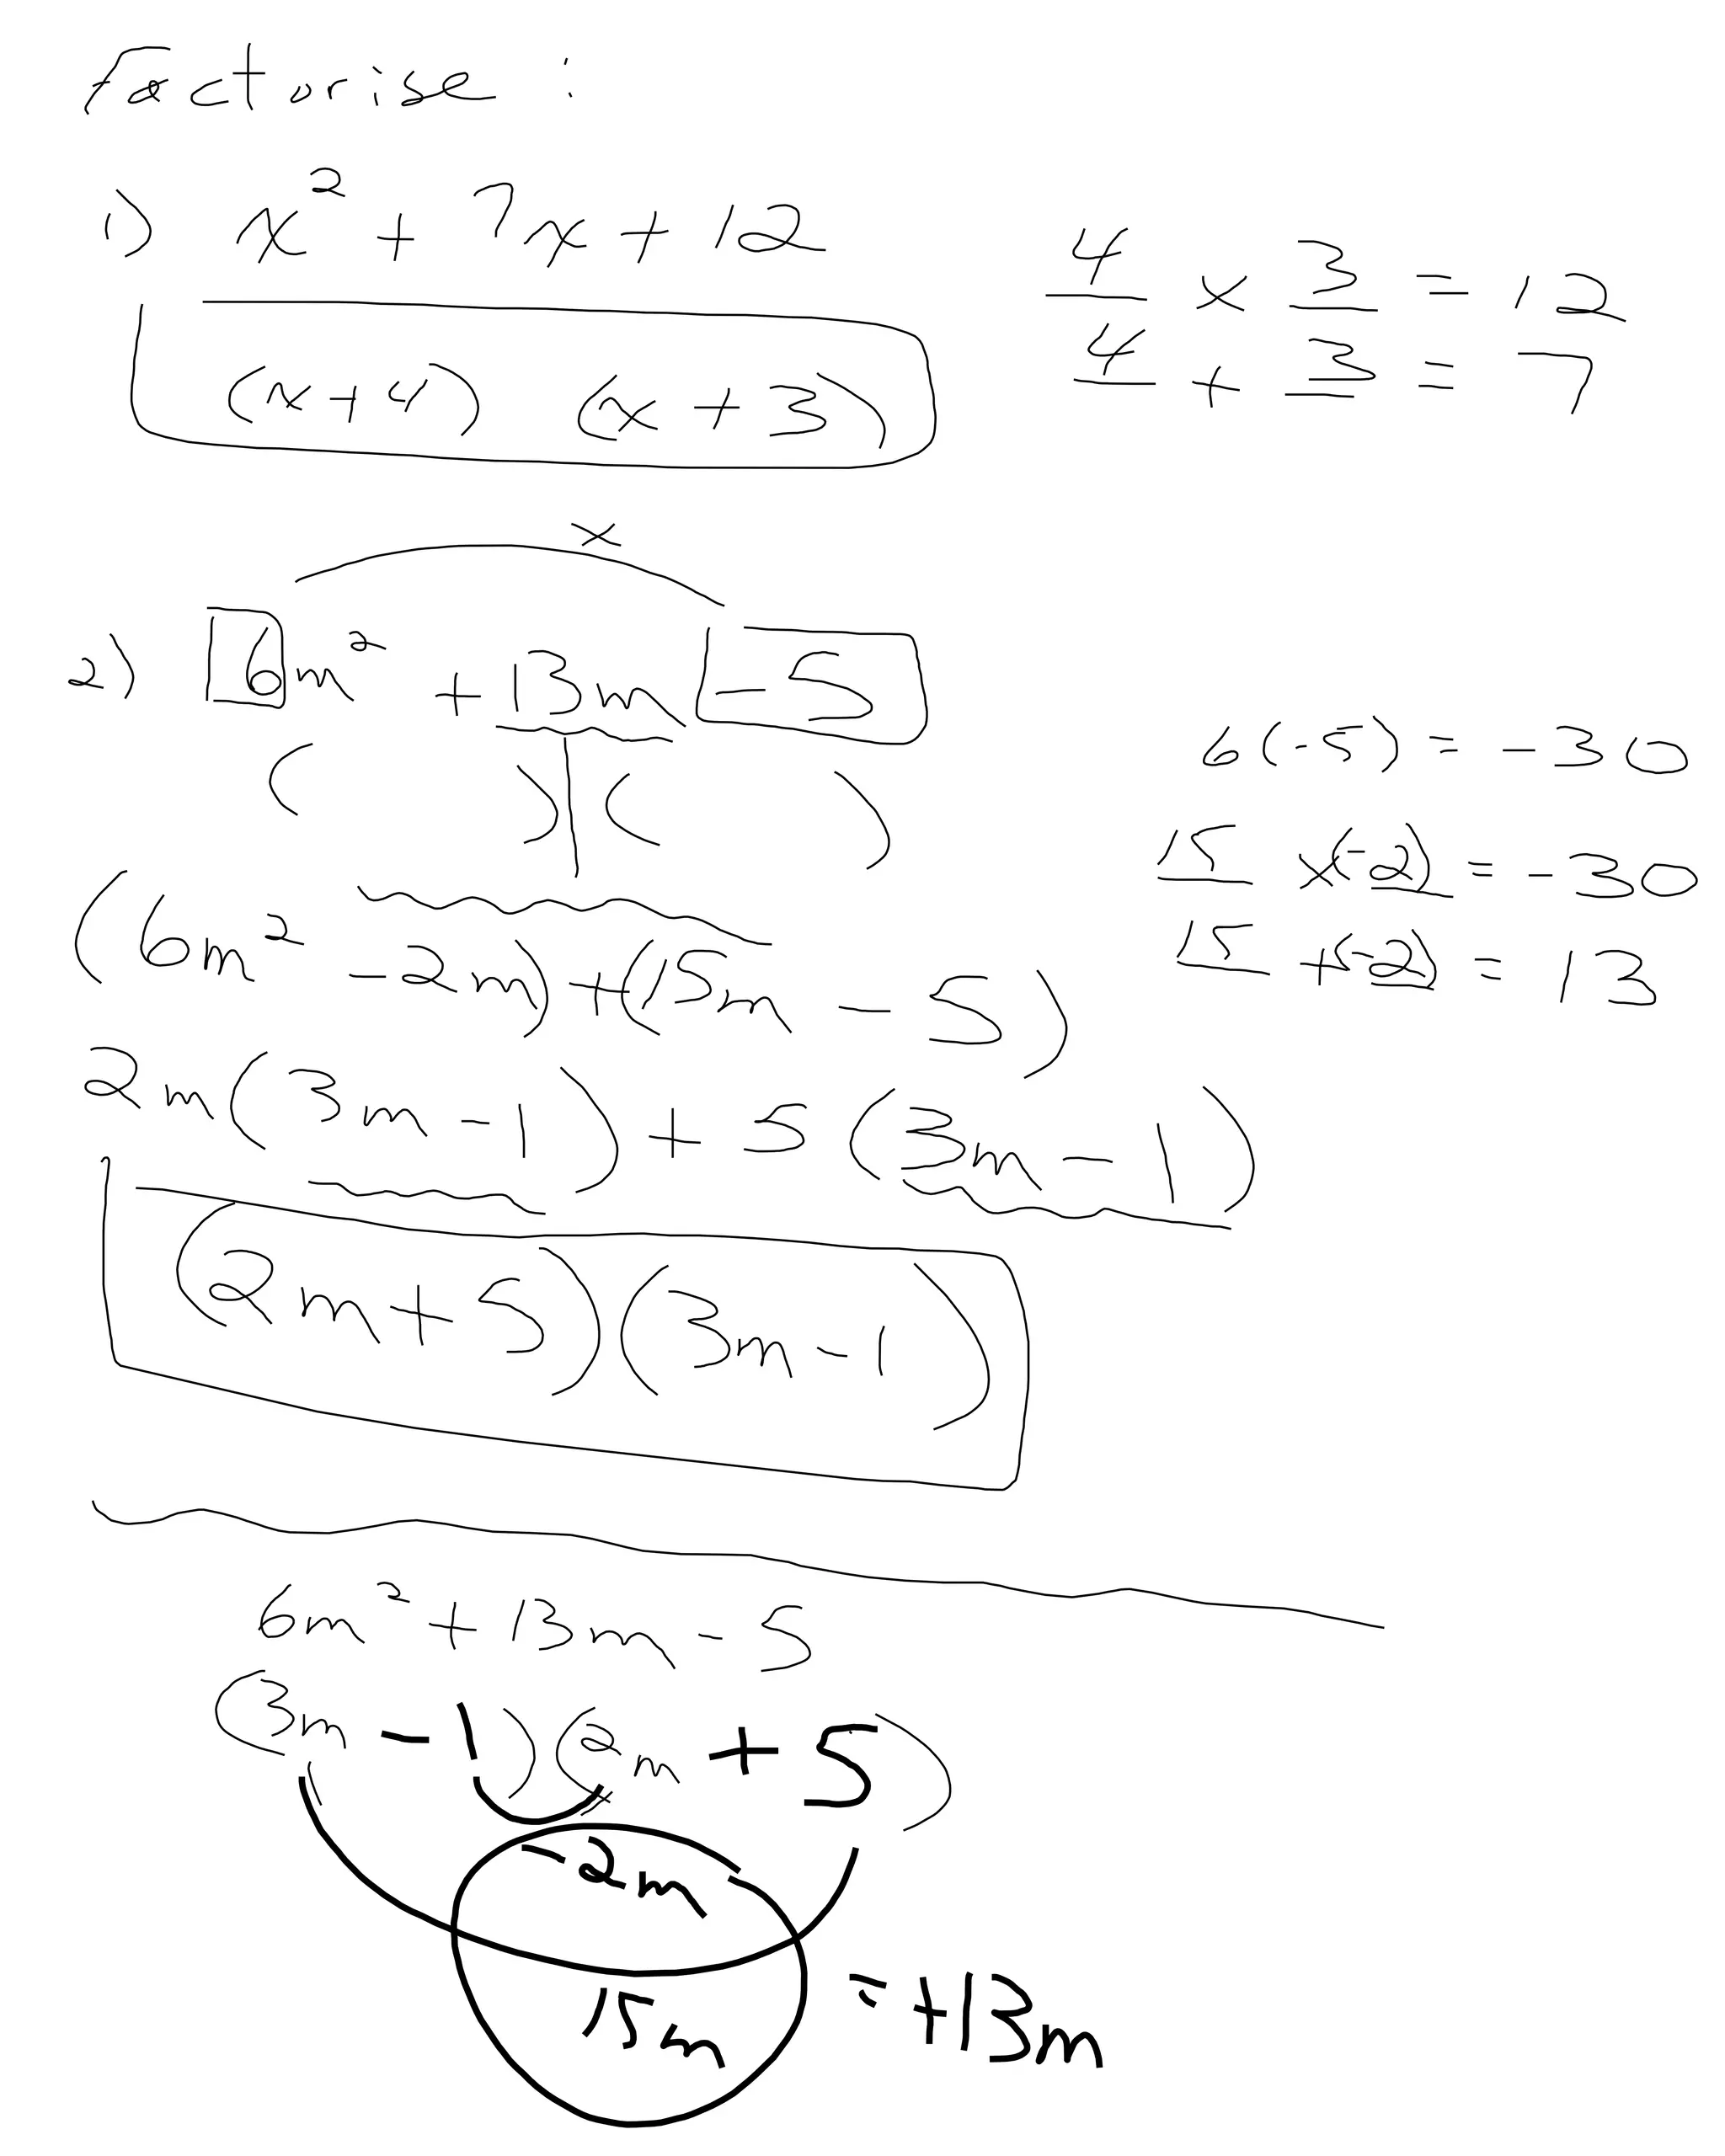 Factorise :
1) x² + 7x + 12
4 × 3 = 12
4 + 3 = 7
(x+4) (x + 3)
×
2) 6m² + 13m - 5
( ) ( )
6(-5) = -30
15 ×(-2) = -30
15 +(-2) = 13
(6m² - 2m) + (15m - 5)
2m(3m - 1) + 5(3m - 1)
(2m + 5)(3m - 1)
6m² + 13m - 5
(3m - 1)(2m + 5)
-2m
15m
= +13m